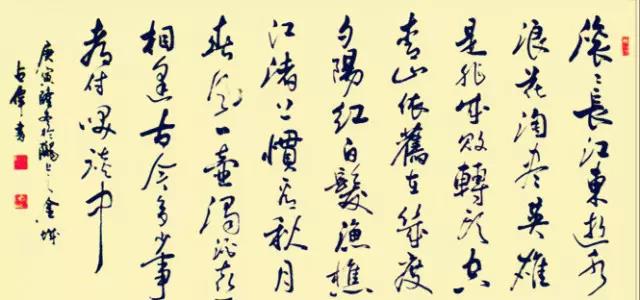 滾々長江東逝水
浪花淘尽英雄
是非成敗轉頭空
青山依舊在幾度
夕陽紅白髮漁樵
江渚上慣看秋月
春風一壺濁酒喜
相逢古今多少事
都付笑談中
庚寅